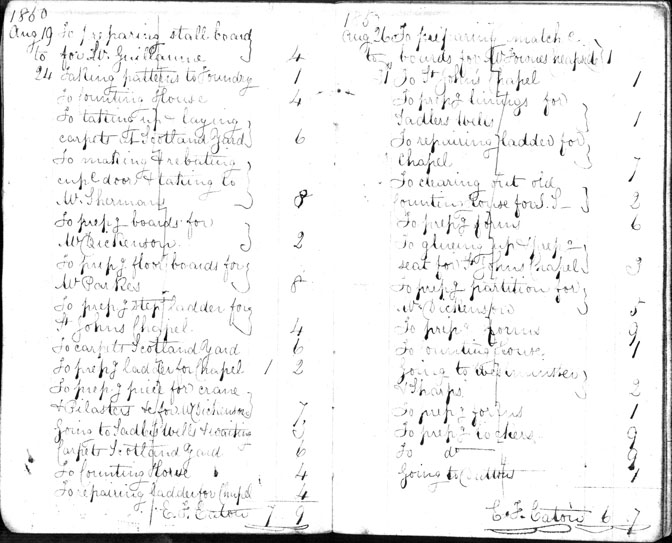 1860
Aug 19 To preparing stall board
to for W. Guillaume 4
24 Taking pattern to Foundry 1
To Counting House 4
To taking up & laying
carpets at Scotland Yard 6
To making & rebating
cupd door & taking to
W. Shermans 8
To prepg boards for
Mr Dickenson 2
To prepg floor boards for
Mr Parkes 8
To prepg step ladder for
St Johns Chapel 4
To carpets Scotland Yard 6
To prepg ladder for Chapel 1 2
To prepg piece for crane
& Pilasters &c for W Dickenson 7
Going to Sadlers Wells &
Carpets Scotland Yard 6
To Counting House 4
To repairing Ladder for Chapel 4
E. F. Eaton 7 9
Aug 26 To preparing match
to boards for
31 To St Johns Chapel 1
To prepg linings for
Sadlers Wells 1
To repairing ladder for
Chapel 7
To clearing out old
Counting House for S.S 2
To prepg forms 6
To glueing up & prepg
seat for St Johns Chapel 3
To prepg partition for
W Dickenson 5
To prepg forms 9
To Counting House 1
Going to Westminster
& Sharps 2
To prepg forms 1
To prepg lockers 9
To do 9
Going to 1
E. F. Eaton 6 7